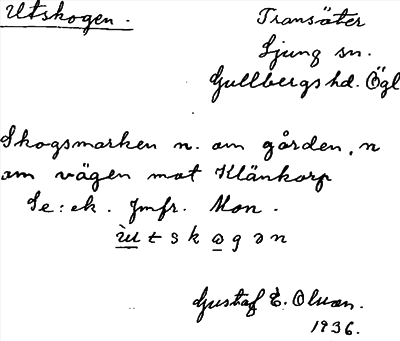 Utskogen.
Transäter
Ljung sn.
Gullbergs hd. Ögl
Skogsmarken n. om gården, n
om vägen mot Klänkorp
Se: ek. Jmfr. Mon.
ù̀t s k ɷ g ɘ n
Gustaf E. Olson.
1936.